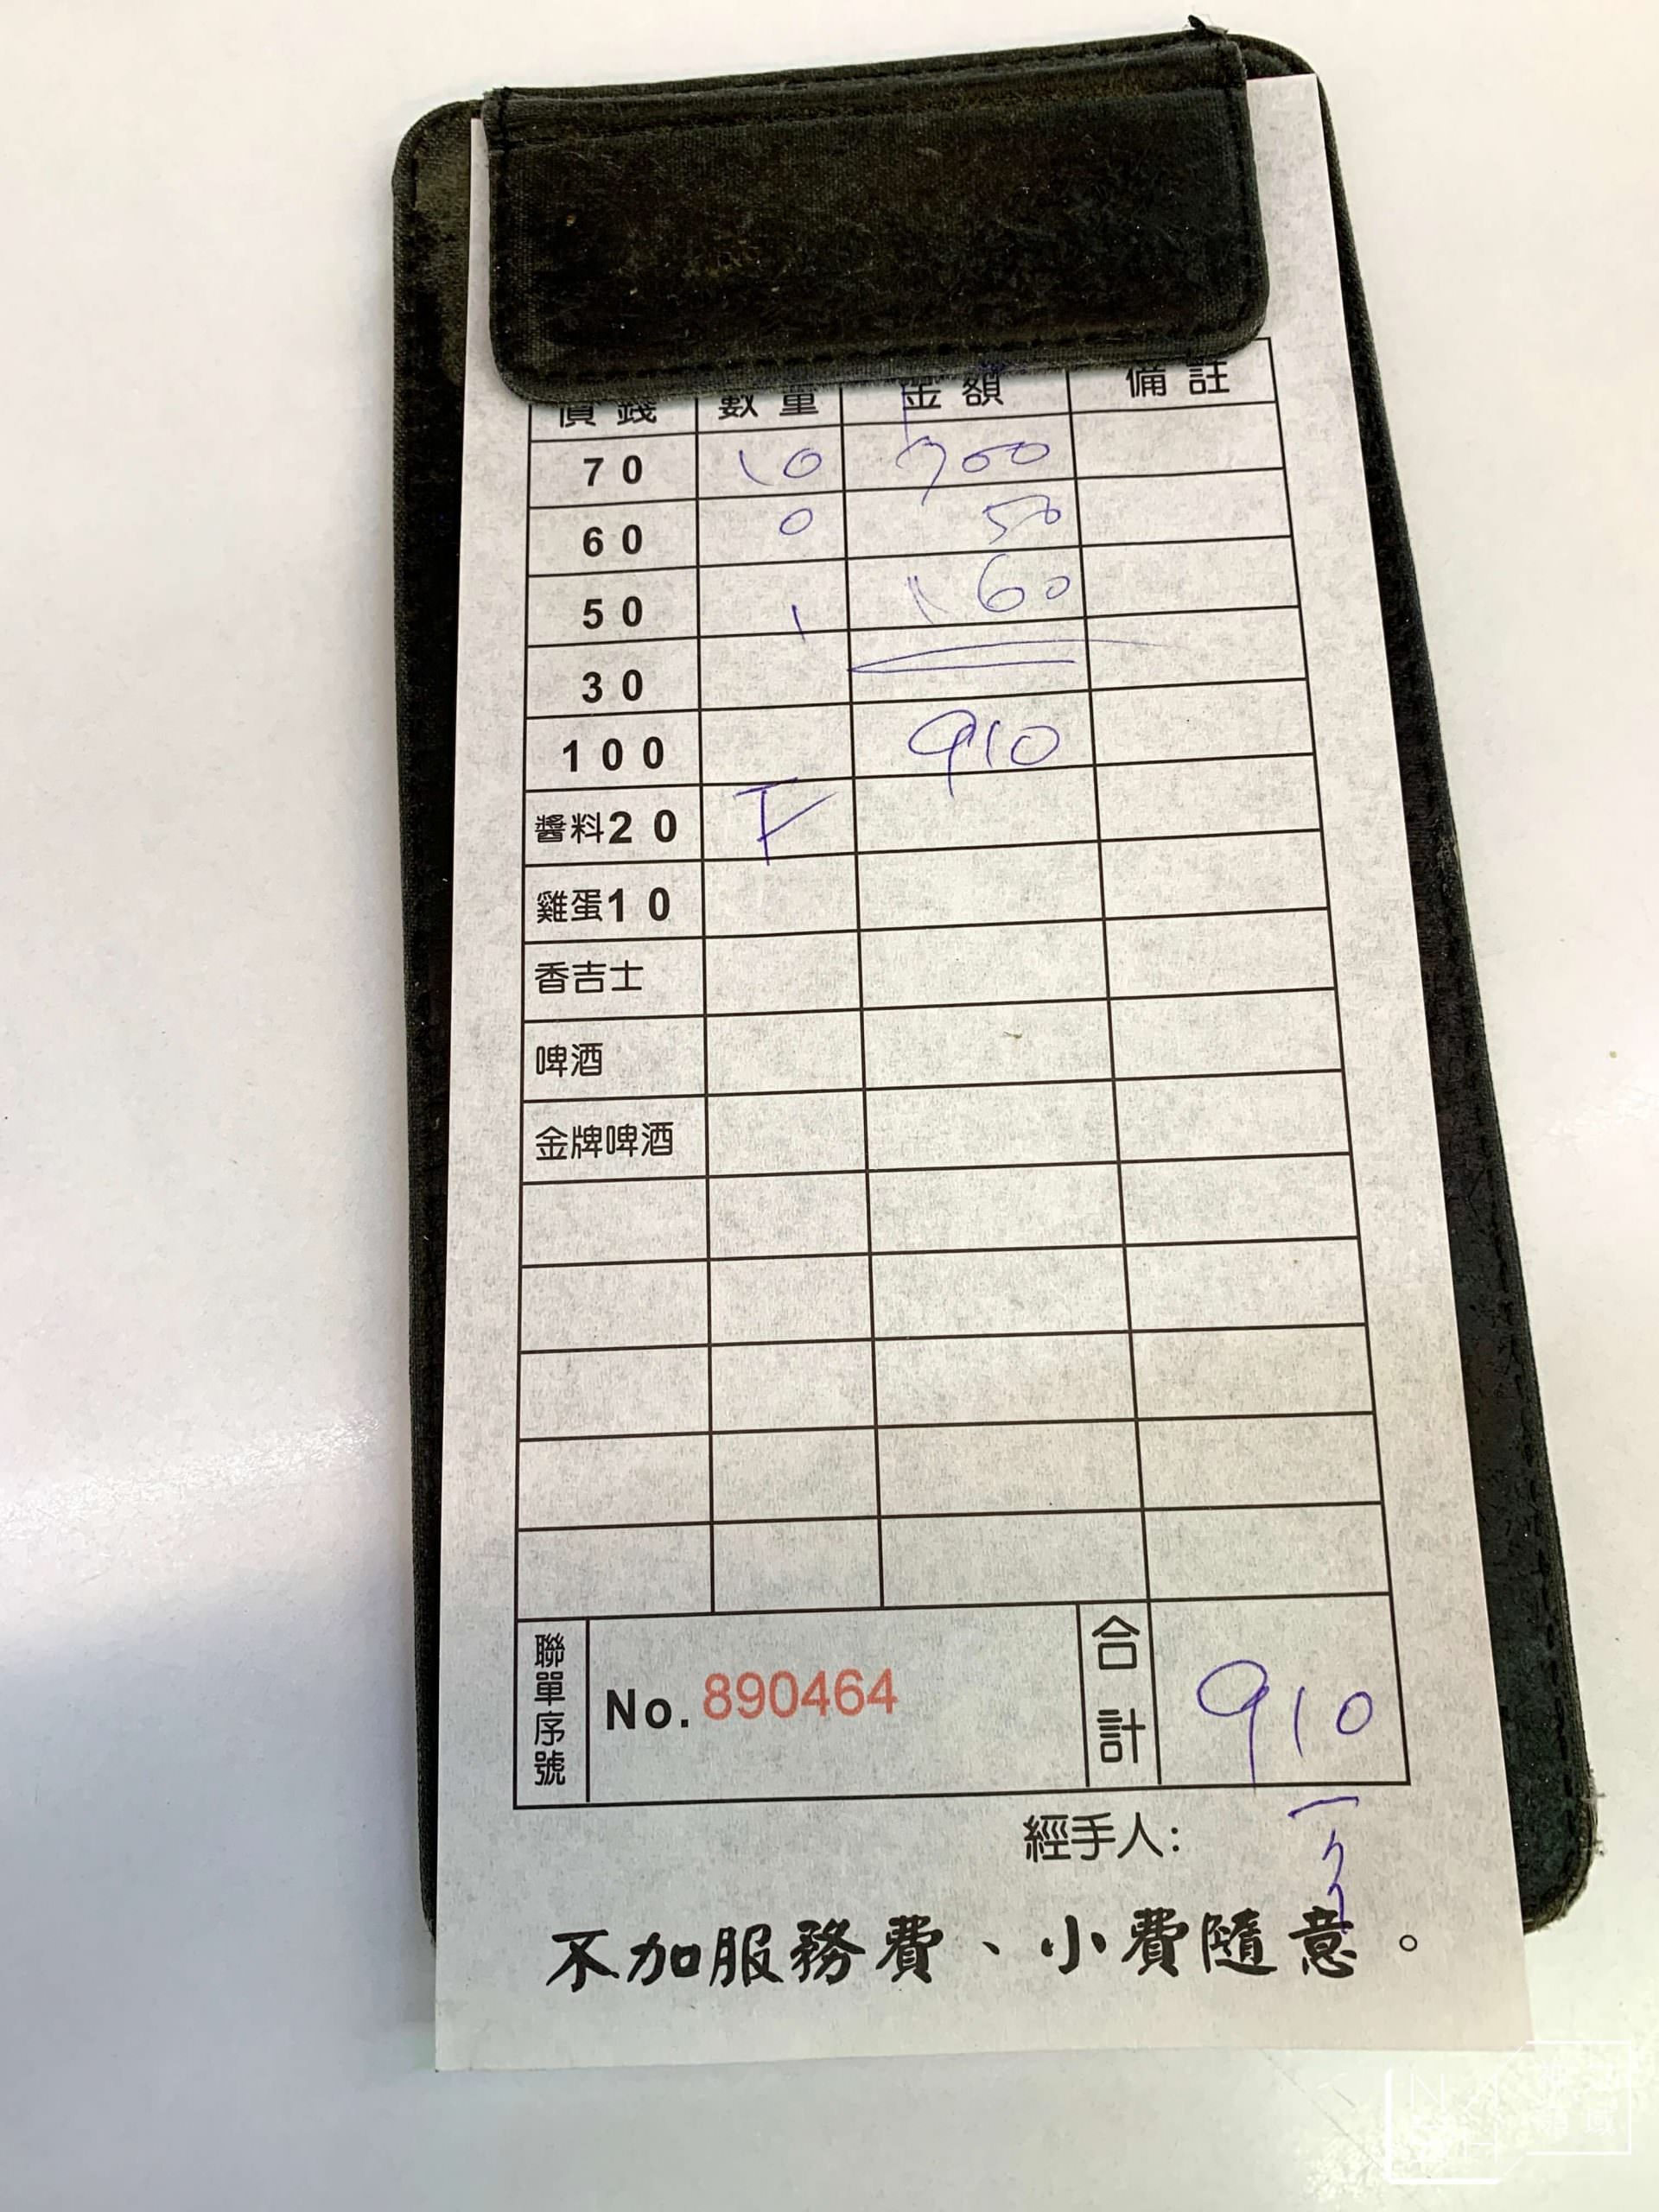 價錢 數量 金額 備註
70 10 700
60 0 50
50 1 160
30
100 910
醬料20
雞蛋10
香吉士
啤酒
金牌啤酒
聯單序號 No. 890464 合計 910
經手人:
不加服務費、小費隨意。